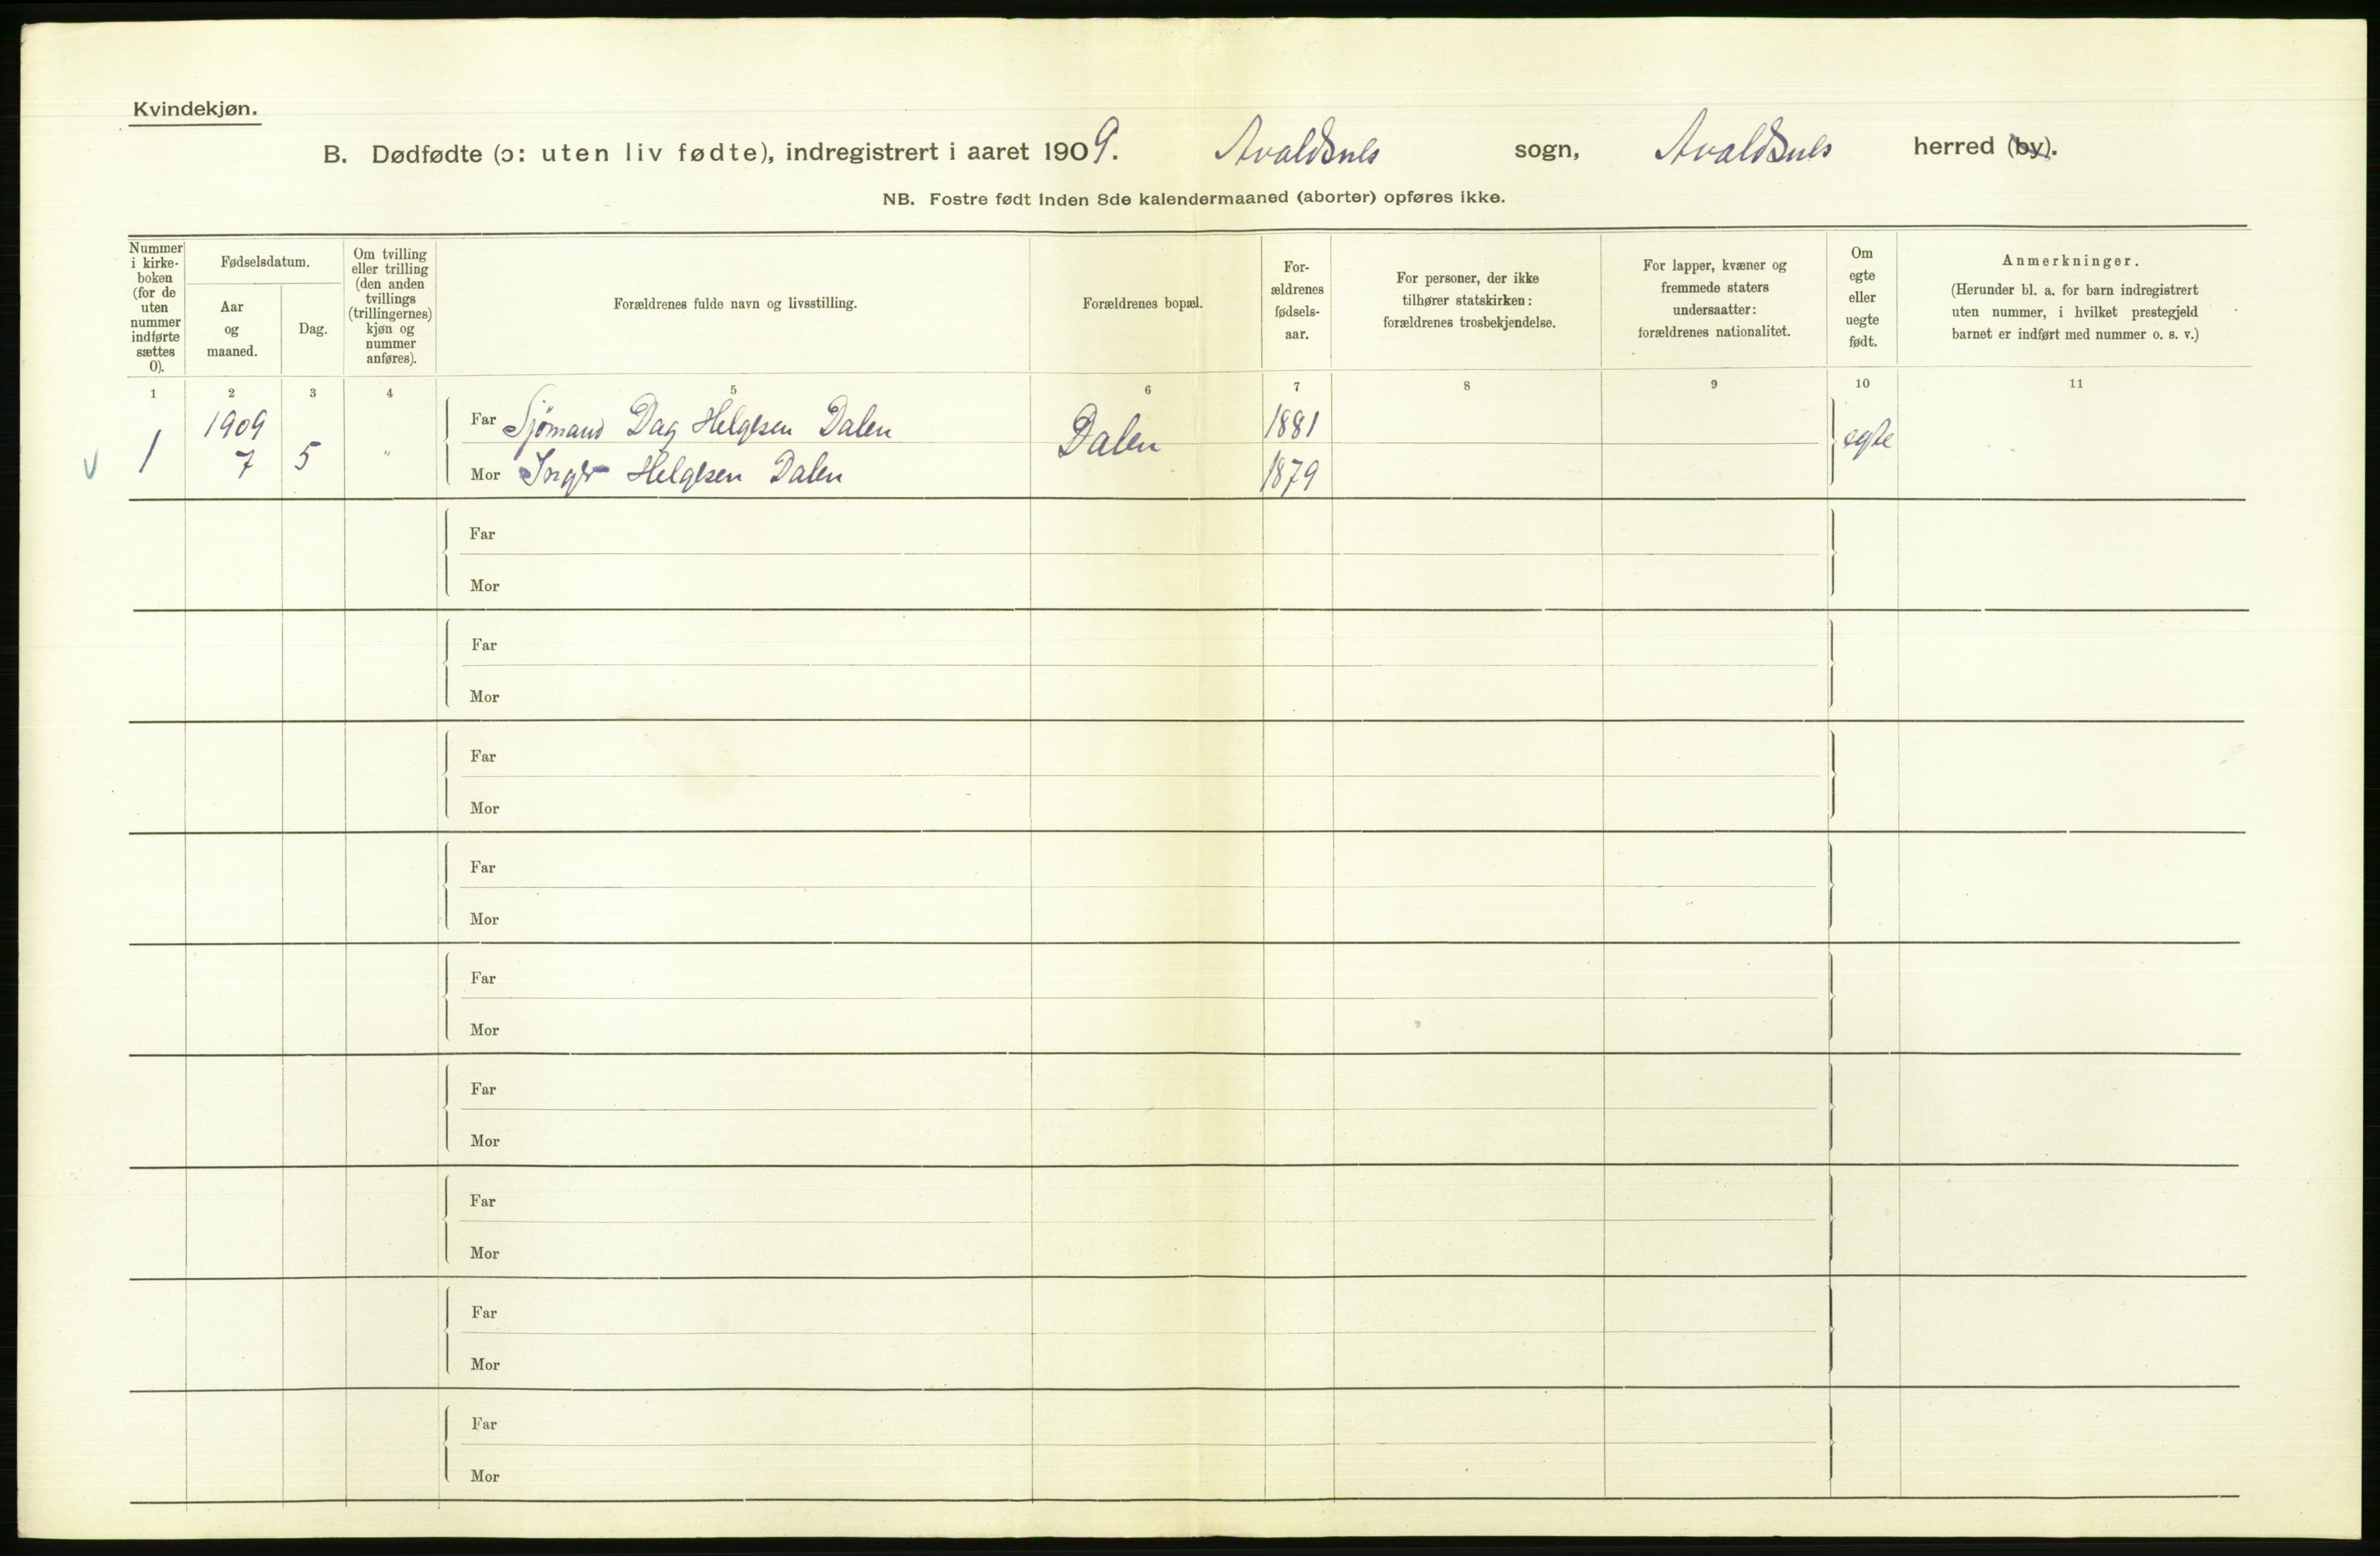 Kvindekjøn.
B. Dødfødte (ɔ: uten liv fødte), indregistrert i aaret 1909. Avaldsnes sogn, Avaldsnes herred (by).
NB. Fostre født inden 8de kalendermaaned (aborter) opføres ikke.
Nummer i kirke-boken (for de uten nummer indførte sættes 0).
Fødselsdatum.
Aar og maaned.
Dag.
Om tvilling eller trilling (den anden tvillings (trillingernes) kjøn og nummer anføres).
Forældrenes fulde navn og livsstilling.
Forældrenes bopæl.
For-ældrenes fødsels-aar.
For personer, der ikke tilhører statskirken: forældrenes trosbekjendelse.
For lapper, kvæner og fremmede staters undersaatter: forældrenes nationalitet.
Om egte eller uegte født.
Anmerkninger.
(Herunder bl. a. for barn indregistrert uten nummer, i hvilket prestegjeld barnet er indført med nummer o. s. v.)
1 2 3 4 5 6 7 8 9 10 11
1909
Far Sjømand Dag Helgesen Dalen Dalen 1881 egte
V 1 7 5 "
Mor Inger Helgesen Dalen 1879
Far
Mor
Far
Mor
Far
Mor
Far
Mor
Far
Mor
Far
Mor
Far
Mor
Far
Mor
Far
Mor